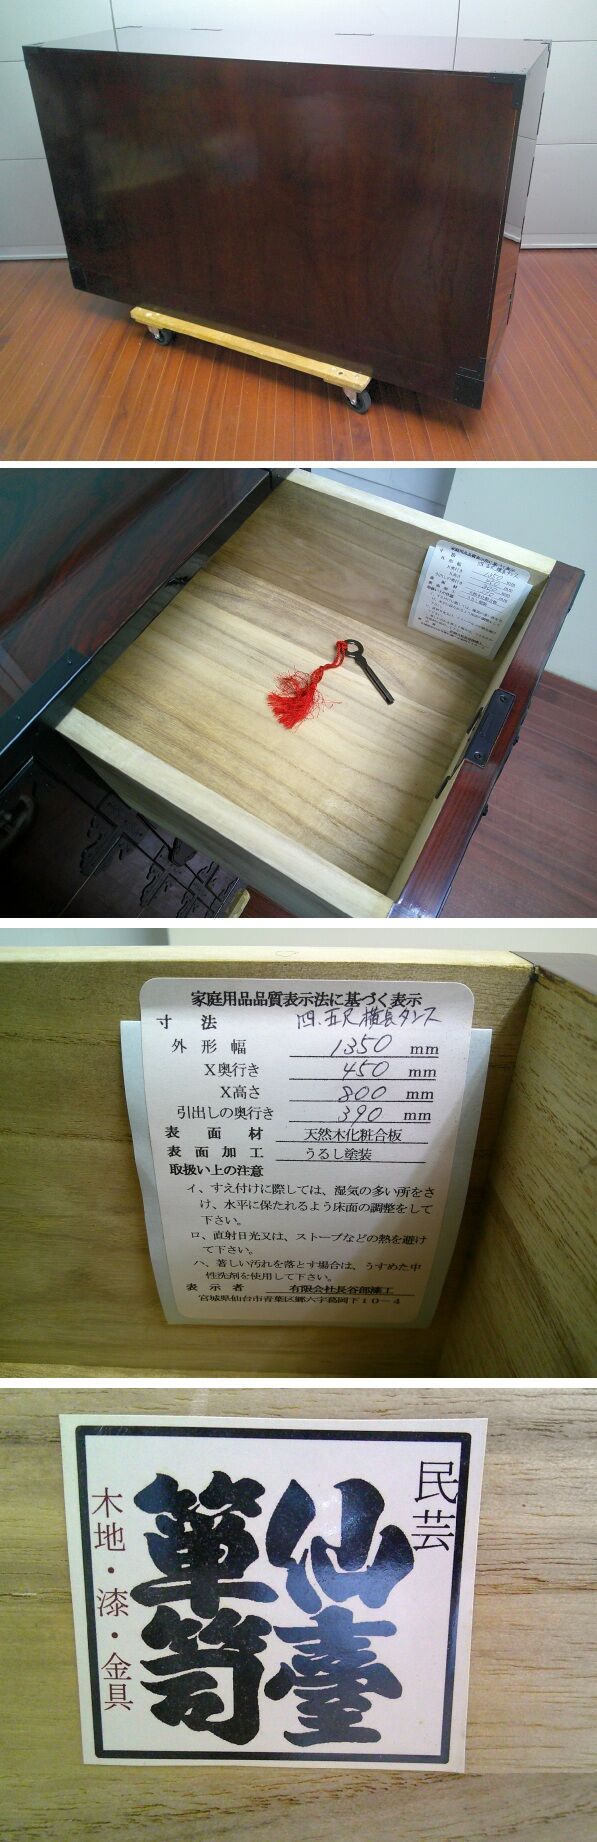 家庭用品品質表示法に基づく表示
寸 法 四.五尺 横長タンス
外形幅 1350 mm
X奥行き 450 mm
X高さ 800 mm
引出しの奥行き 390 mm
表面材 天然木化粧合板
表面加工 うるし塗装
取扱い上の注意
イ、すえ付けに際しては、湿気の多い所をさ
け、水平に保たれるよう床面の調整をして
下さい。
ロ、直射日光又は、ストーブなどの熱を避け
て下さい。
ハ、著しい汚れを落とす場合は、うすめた中
性洗剤を使用して下さい。
表示者 有限会社長谷部漆工
宮城県仙台市青葉区郷六字葛岡下10-4
民芸
仙臺
簞笥
木地・漆・金具